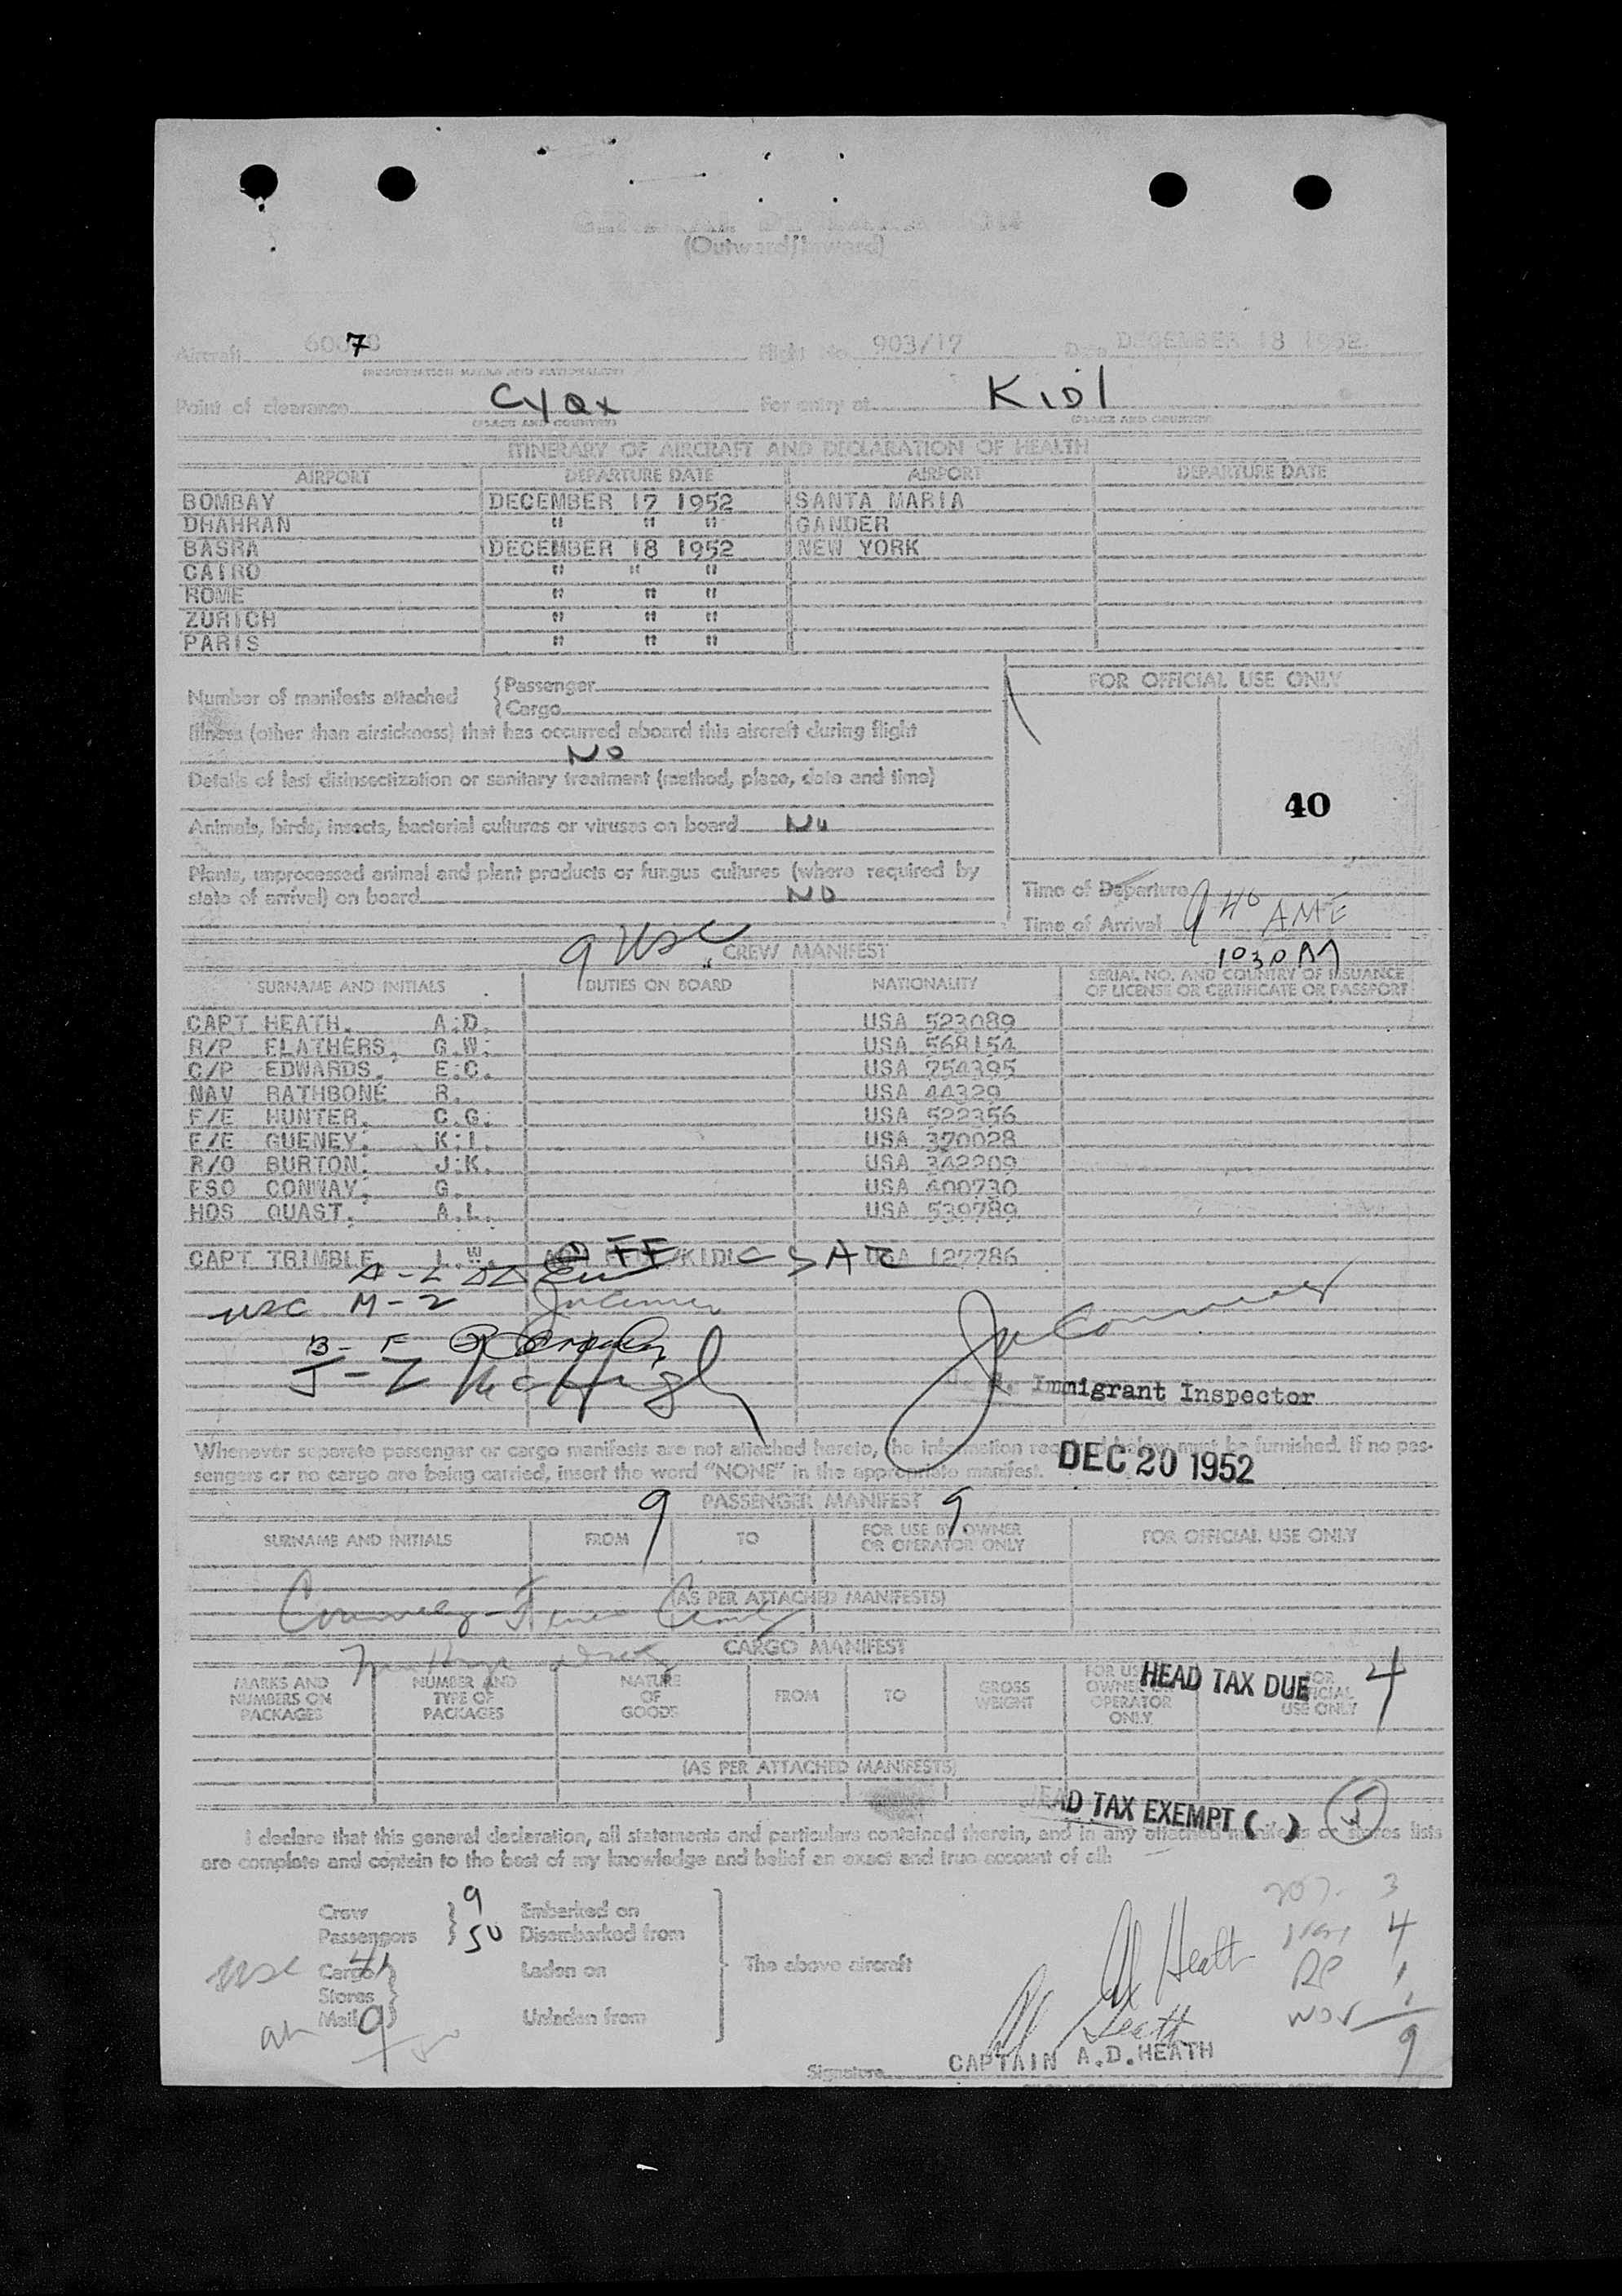 (Outward/Inward)
Aircraft 7 Flight No. 903/17 Date DECEMBER 18 1952
(REGISTRATION MARKS AND NATIONALITY)
Point of clearance Cyqx For entry at KIDL
(PLACE AND COUNTRY) (PLACE AND COUNTRY)
ITINERARY OF AIRCRAFT AND DECLARATION OF HEALTH
AIRPORT DEPARTURE DATE AIRPORT DEPARTURE DATE
BOMBAY DECEMBER 17 1952 SANTA MARIA
DHAHRAN " " " GANDER
BASRA DECEMBER 18 1952 NEW YORK
CAIRO " " "
ROME " " "
ZURICH " " "
PARIS " " "
Number of manifests attached { Passenger
{ Cargo
FOR OFFICIAL USE ONLY
Illness (other than airsickness) that has occurred aboard this aircraft during flight
NO
Details of last disinsectization or sanitary treatment (method, place, date and time)
40
Animals, birds, insects, bacterial cultures or viruses on board No
Plants, unprocessed animal and plant products or fungus cultures (where required by
state of arrival) on board NO
Time of Departure
Time of Arrival 9 40 AME
1030 AM
9 USC
CREW MANIFEST
SURNAME AND INITIALS DUTIES ON BOARD NATIONALITY SERIAL NO. AND COUNTRY OF ISSUANCE
OF LICENSE OR CERTIFICATE OR PASSPORT
CAPT HEATH. A.D. USA 523089
R/P FLATHERS, G.W. USA 568154
C/P EDWARDS. E.C. USA 754395
NAV RATHBONE R. USA 44329
F/E HUNTER. C.G. USA 522356
F/E GUENEY. K.I. USA 370028
R/O BURTON. J.K. USA 342209
FSO CONWAY. G. USA 400730
HOS QUAST. A.L. USA 539789
CAPT TRIMBLE I.W. OFF KIDL USA 127786
A-L
USC M-2
B-F
J-Z McHugh
U. S. Immigrant Inspector
Whenever separate passenger or cargo manifests are not attached hereto, the information required below must be furnished. If no pas-
sengers or no cargo are being carried, insert the word "NONE" in the appropriate manifest.
DEC 20 1952
9 PASSENGER MANIFEST 9
SURNAME AND INITIALS FROM TO FOR USE BY OWNER
OR OPERATOR ONLY FOR OFFICIAL USE ONLY
(AS PER ATTACHED MANIFESTS)
CARGO MANIFEST
MARKS AND
NUMBERS ON
PACKAGES NUMBER AND
TYPE OF
PACKAGES NATURE
OF
GOODS FROM TO GROSS
WEIGHT FOR USE
OWNER OR
OPERATOR
ONLY FOR
OFFICIAL
USE ONLY
HEAD TAX DUE 4
(AS PER ATTACHED MANIFESTS)
HEAD TAX EXEMPT ( ) 5
I declare that this general declaration, all statements and particulars contained therein, and in any attached manifests or stores lists
are complete and contain to the best of my knowledge and belief an exact and true account of all:
Crew } 9 Embarked on
Passengers } 50 Disembarked from
USC 41 Cargo } Laden on The above aircraft
Stores }
Mail } 9 Unladen from
50
3
4
RP 1
1
9
AD Heath
AD Heath
Signature CAPTAIN A.D.HEATH